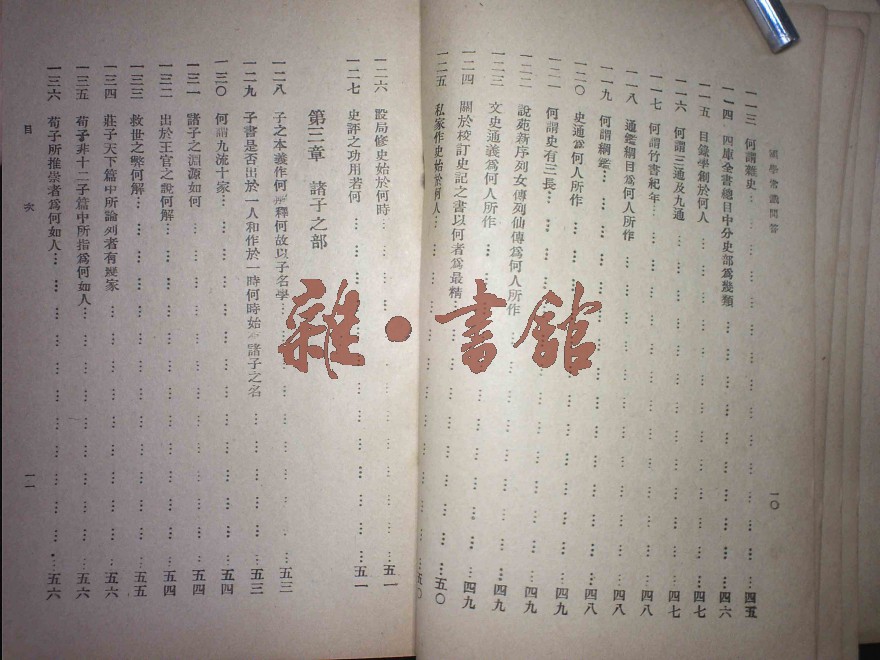 國學常識問答
一〇
一一三 何謂雜史……四五
一一四 四庫全書總目中分史部爲幾類……四六
一一五 目錄學創於何人……四七
一一六 何謂三通及九通……四七
一一七 何謂竹書紀年……四八
一一八 通鑑綱目爲何人所作……四八
一一九 何謂綱鑑……四八
一二〇 史通爲何人所作……四八
一二一 何謂史有三長……四九
一二二 說苑新序列女傳列仙傳爲何人所作……四九
一二三 文史通義爲何人所作……四九
一二四 關於校訂史記之書以何者爲最精……四九
一二五 私家作史始於何人……五〇
一二六 設局修史始於何時……五一
一二七 史評之功用若何……五一
第三章 諸子之部
一二八 子之本義作何解釋何故以子名學……五三
一二九 子書是否出於一人和作於一時何時始 諸子之名……五三
一三〇 何謂九流十家……五四
一三一 諸子之淵源如何……五四
一三二 出於王官之說何解……五四
一三三 救世之弊何解……五五
一三四 莊子天下篇中所論列者有幾家……五六
一三五 荀子非十二子篇中所指爲何如人……五六
一三六 荀子所推崇者爲何如人……五六
目次
一一
雜·書館